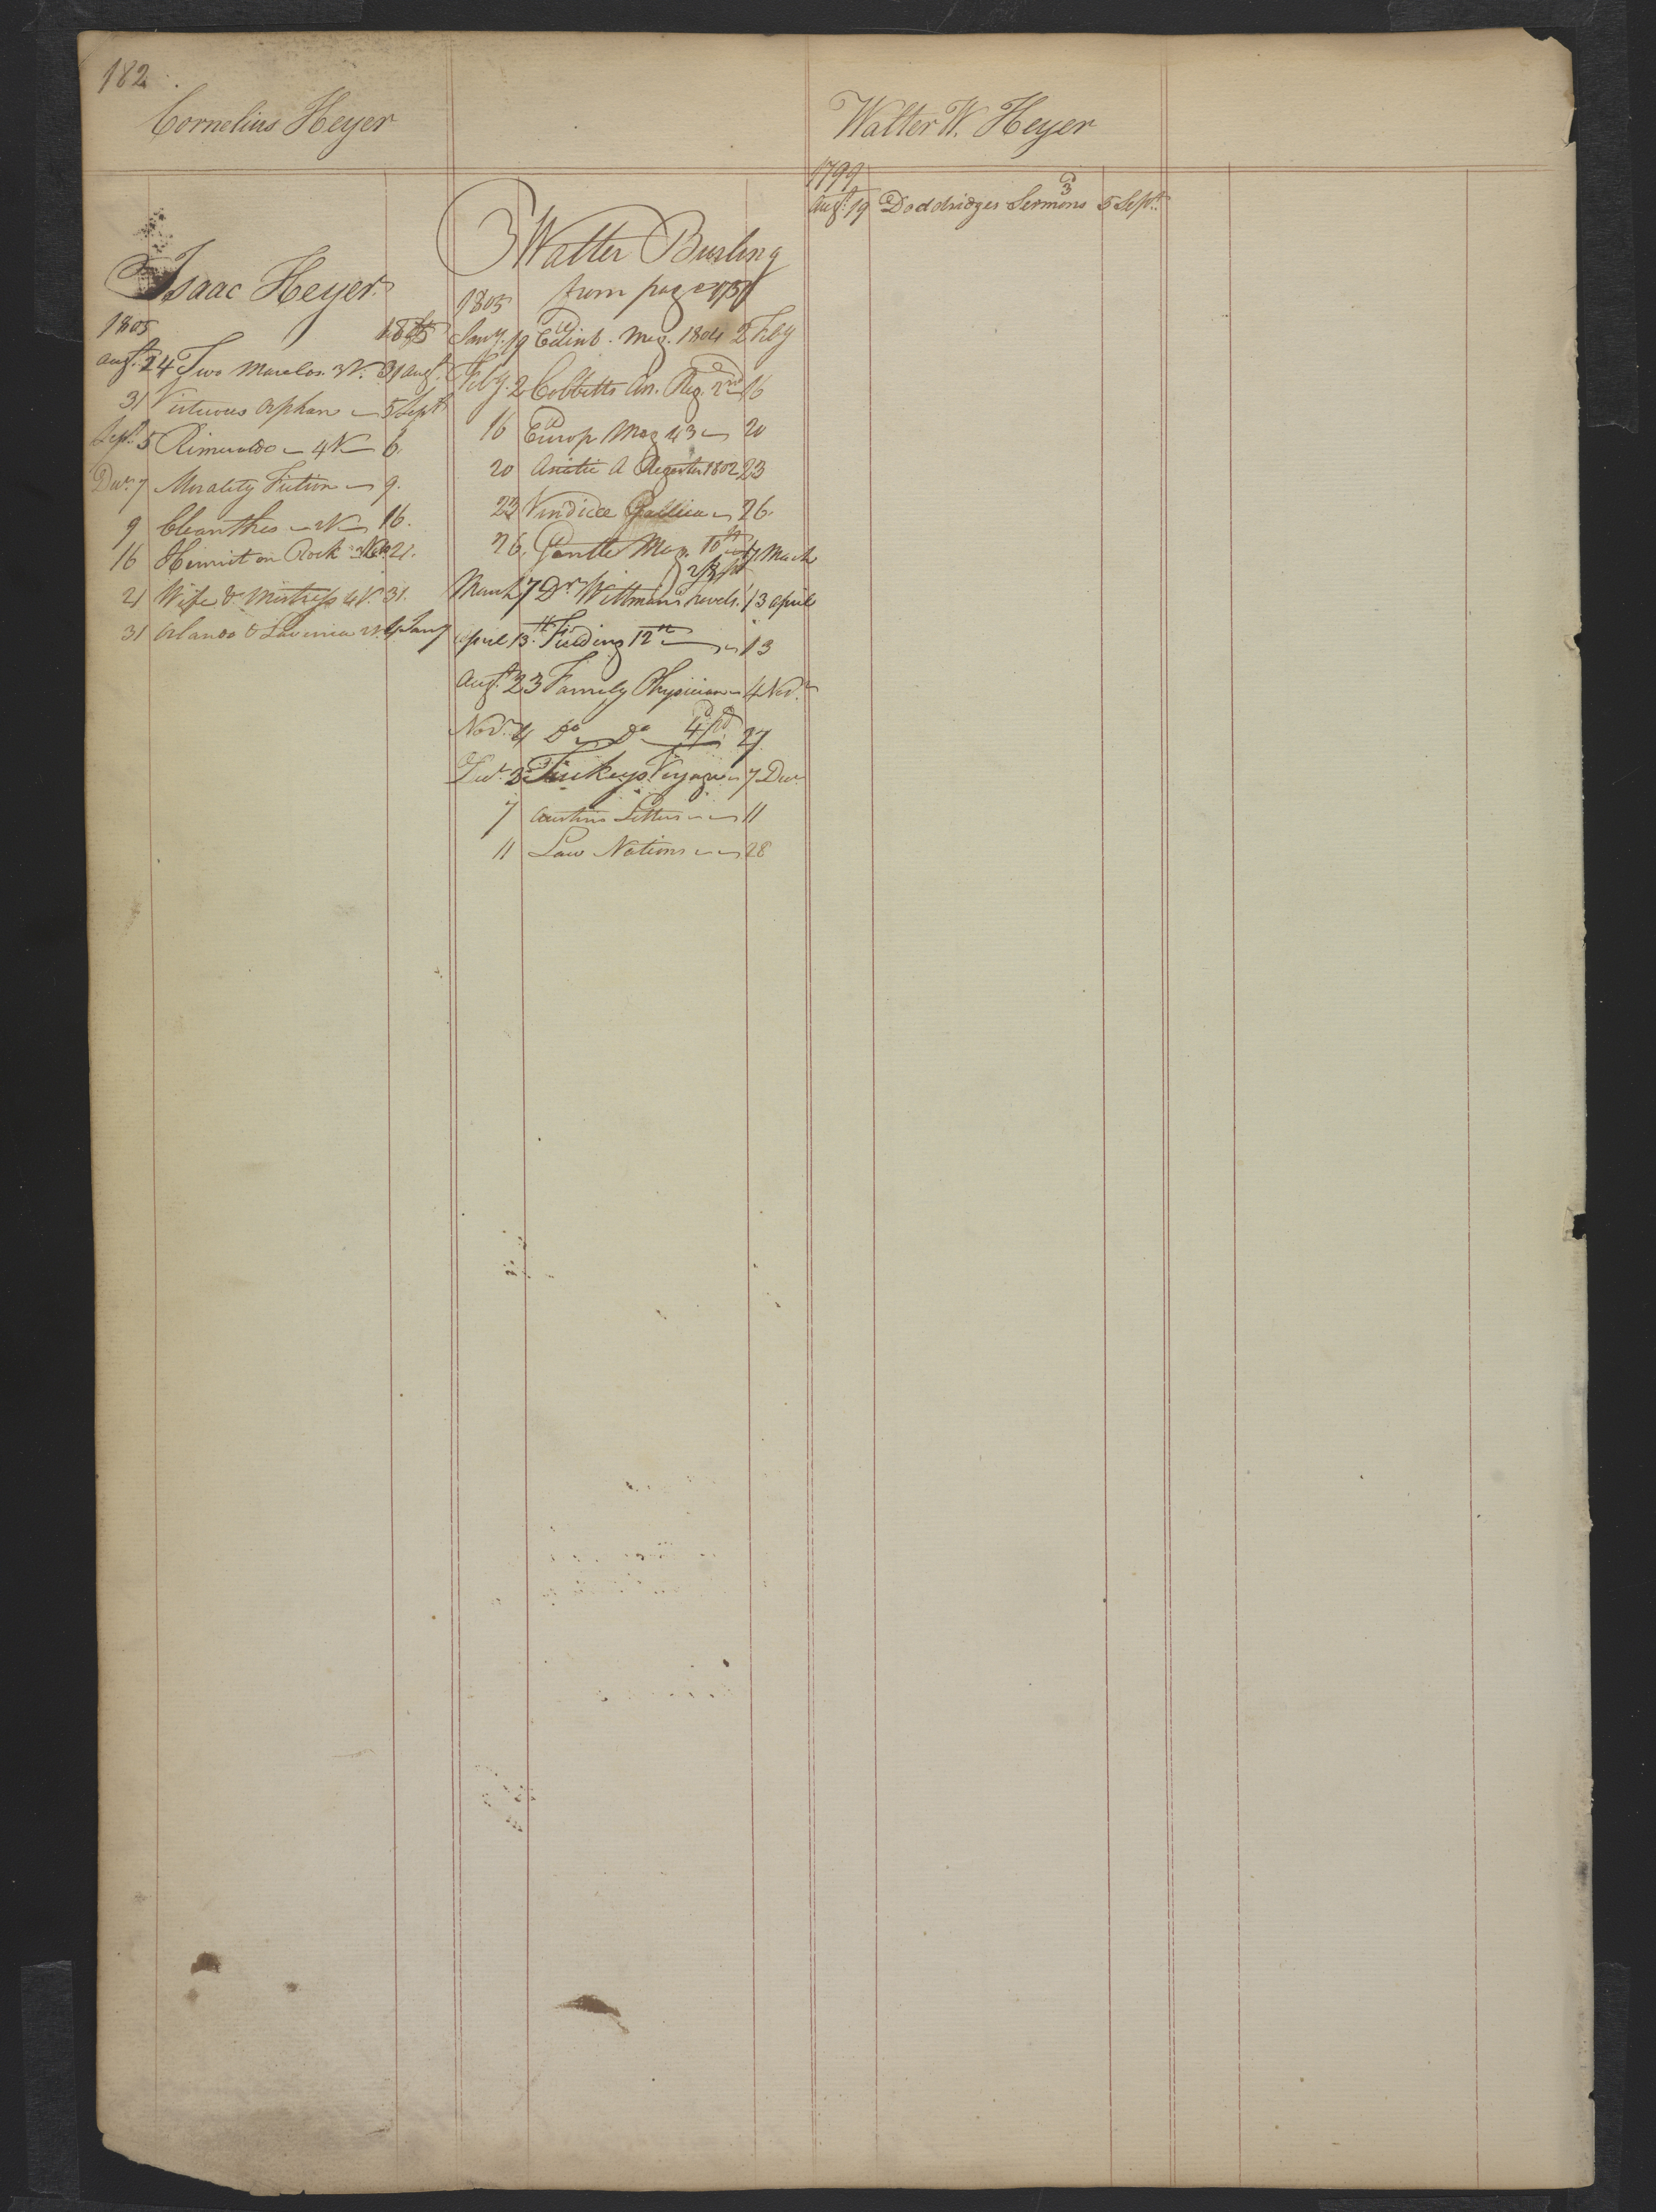 182
Cornelius Heyer
Isaac Heyer
1805 1805
Augt. 24 Two Marelas 3V. 31 Augt.
31 Virtuous Orphan 5 Sept
Sept. 5 Rimualdo 4V 6.
Decr. 7 Morality Fiction 9.
9 Cleanthes 2V 16.
16 Hermit on Rock 21.
21 Wife & Mistress 4V. 31.
31 Orlando & Lavinia 2V. Jany
Walter Burling
from page
1805
Jany. 19 Edinb. Mag. 1804 2 Feby
Feby. 2 Cobbetts An. Reg. 2nd 16
16 Europ Mag 43 20
20 Asiatic A Register 1802 23
23 Vindiciae Gallicae 26.
26. Gentle Mag. 7 March
March 7 Dr. Wittmans Travels. 13 April
April 13. Fielding 12th 13
Augt. 23 Family Physician 4 Novr.
Novr. 4 Do Do 4 pd 27
Decr. 3 Tuckeys Voyage 7 Decr
7 Austins Letters 11
11 Law Nations 28
Walter W. Heyer
1799
Augt. 19 Doddridges Sermons 3d 5 Sept.